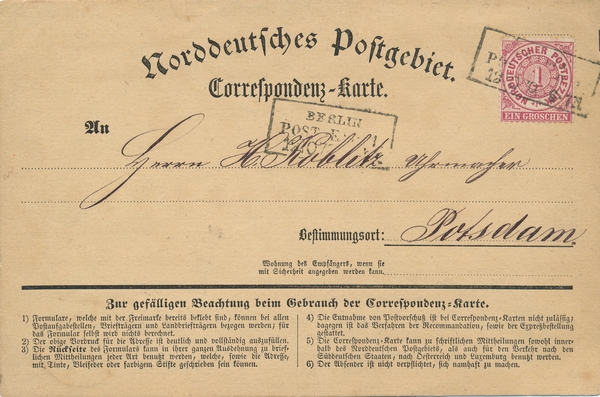 Norddeutsches Postgebiet.
Correspondenz-Karte.
NORDDEUTSCHER POSTBEZIRK
1
EIN GROSCHEN
BERLIN
POST
An
Herrn H. Röblitz Uhrmacher
Bestimmungsort: Potsdam.
Wohnung des Empfängers, wenn sie
mit Sicherheit angegeben werden kann.
Zur gefälligen Beachtung beim Gebrauch der Correspondenz-Karte.
1) Formulare, welche mit der Freimarke bereits beklebt sind, können bei allen
Postaufgabestellen, Briefträgern und Landbriefträgern bezogen werden; für
das Formular selbst wird nichts berechnet.
2) Der obige Vordruck für die Adresse ist deutlich und vollständig auszufüllen.
3) Die Rückseite des Formulars kann in ihrer ganzen Ausdehnung zu brief-
lichen Mittheilungen jeder Art benutzt werden, welche, sowie die Adresse,
mit Tinte, Bleifeder oder farbigem Stifte geschrieben sein können.
4) Die Entnahme von Postvorschuß ist bei Correspondenz-Karten nicht zulässig;
dagegen ist das Verfahren der Recommandation, sowie der Expreßbestellung
gestattet.
5) Die Correspondenz-Karte kann zu schriftlichen Mittheilungen sowohl inner-
halb des Norddeutschen Postgebiets, als auch für den Verkehr nach den
Süddeutschen Staaten, nach Oesterreich und Luxemburg benutzt werden.
6) Der Absender ist nicht verpflichtet, sich namhaft zu machen.